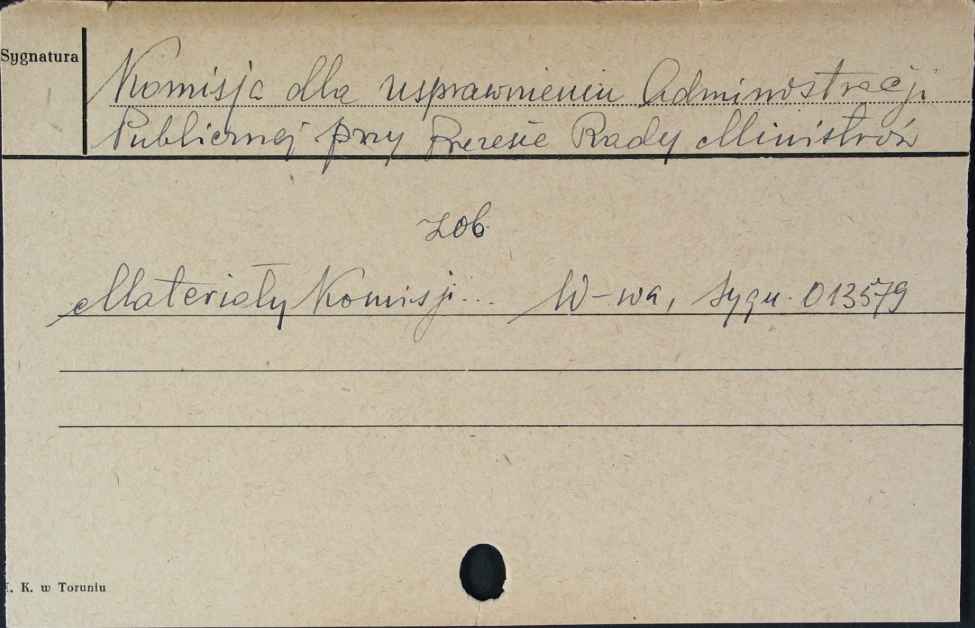 Sygnatura
Komisja dla usprawnieniu Administracji
Publicznej przy Prezesie Rady Ministrów
zob
Materiały Komisji... W-wa, sygn. 013579
K. w Toruniu